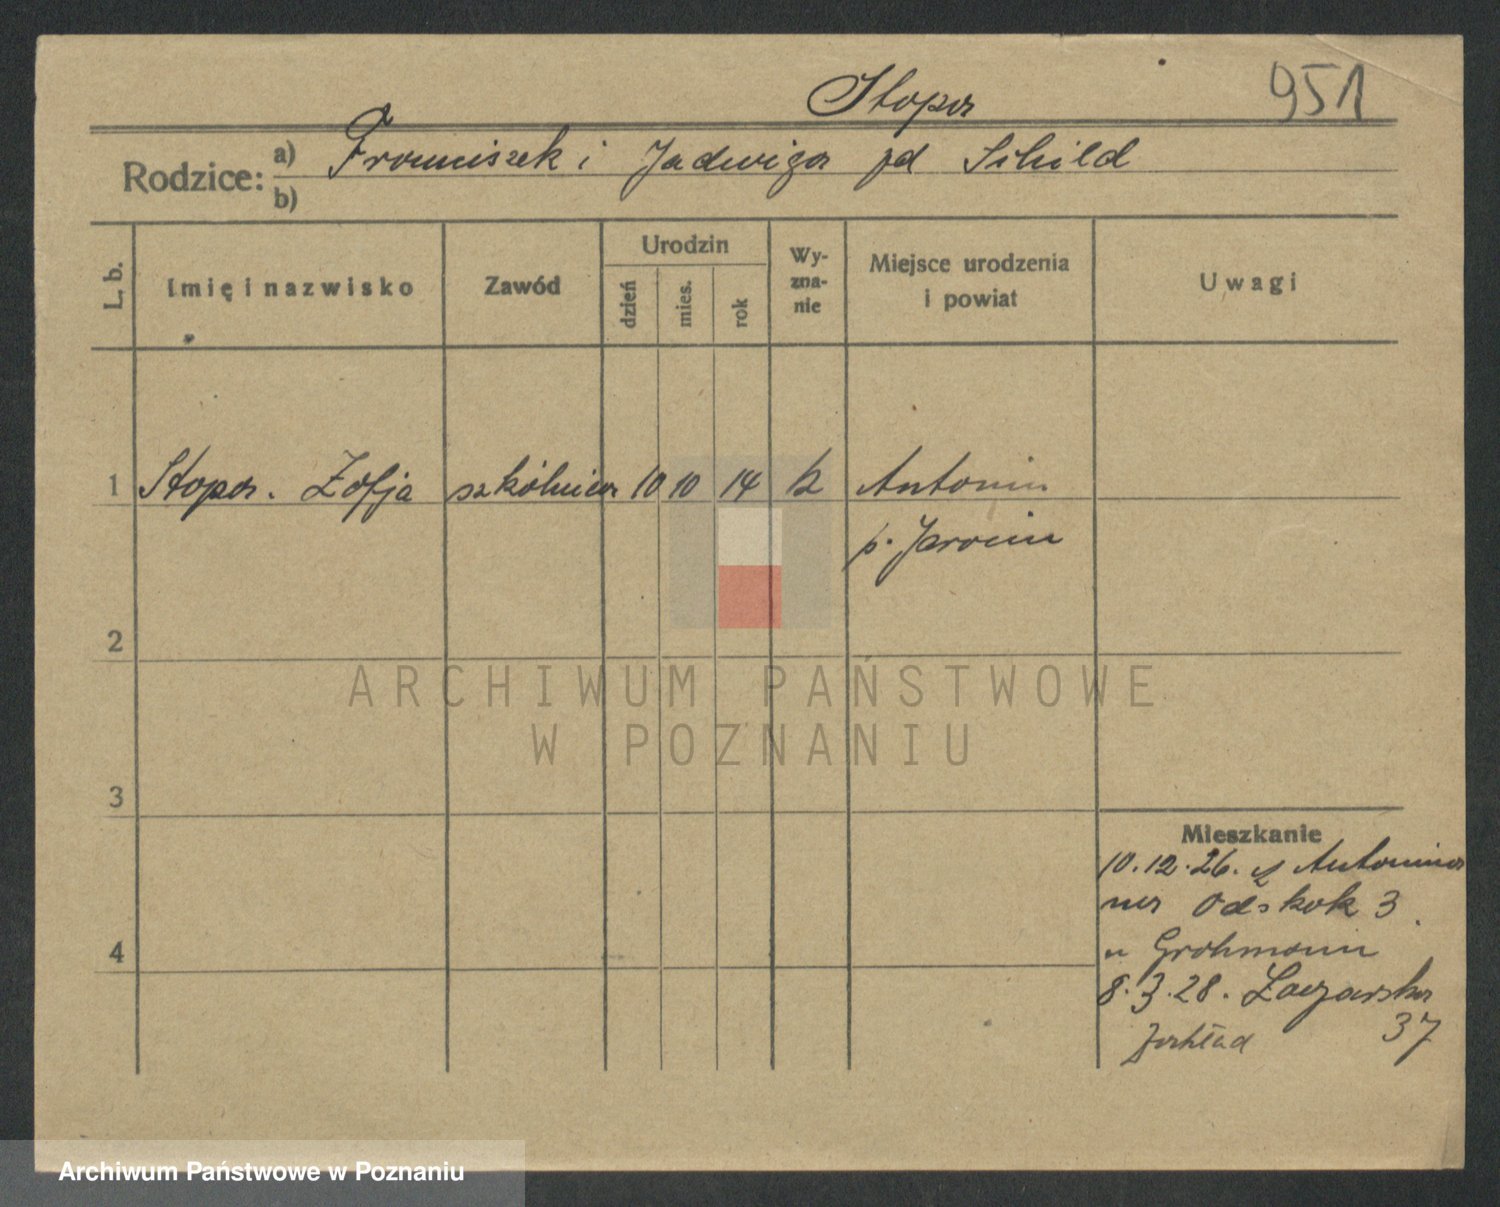 Stopa 951
Rodzice: a) Franciszek i Jadwiga zd Schild
b)
L. b. Imię i nazwisko Zawód Urodzin dzień mies. rok Wy-zna-nie Miejsce urodzenia i powiat Uwagi
1 Stopa. Zofja szkólnica 10 10 14 k Antonin
p. Jarocin
2
ARCHIWUM PAŃSTWOWE
W POZNANIU
3
Mieszkanie
10.12.26. z Antonina
na Odskok 3
u Grohmann
4
8.3.28. Łazarska
37
Zakład
Archiwum Państwowe w Poznaniu